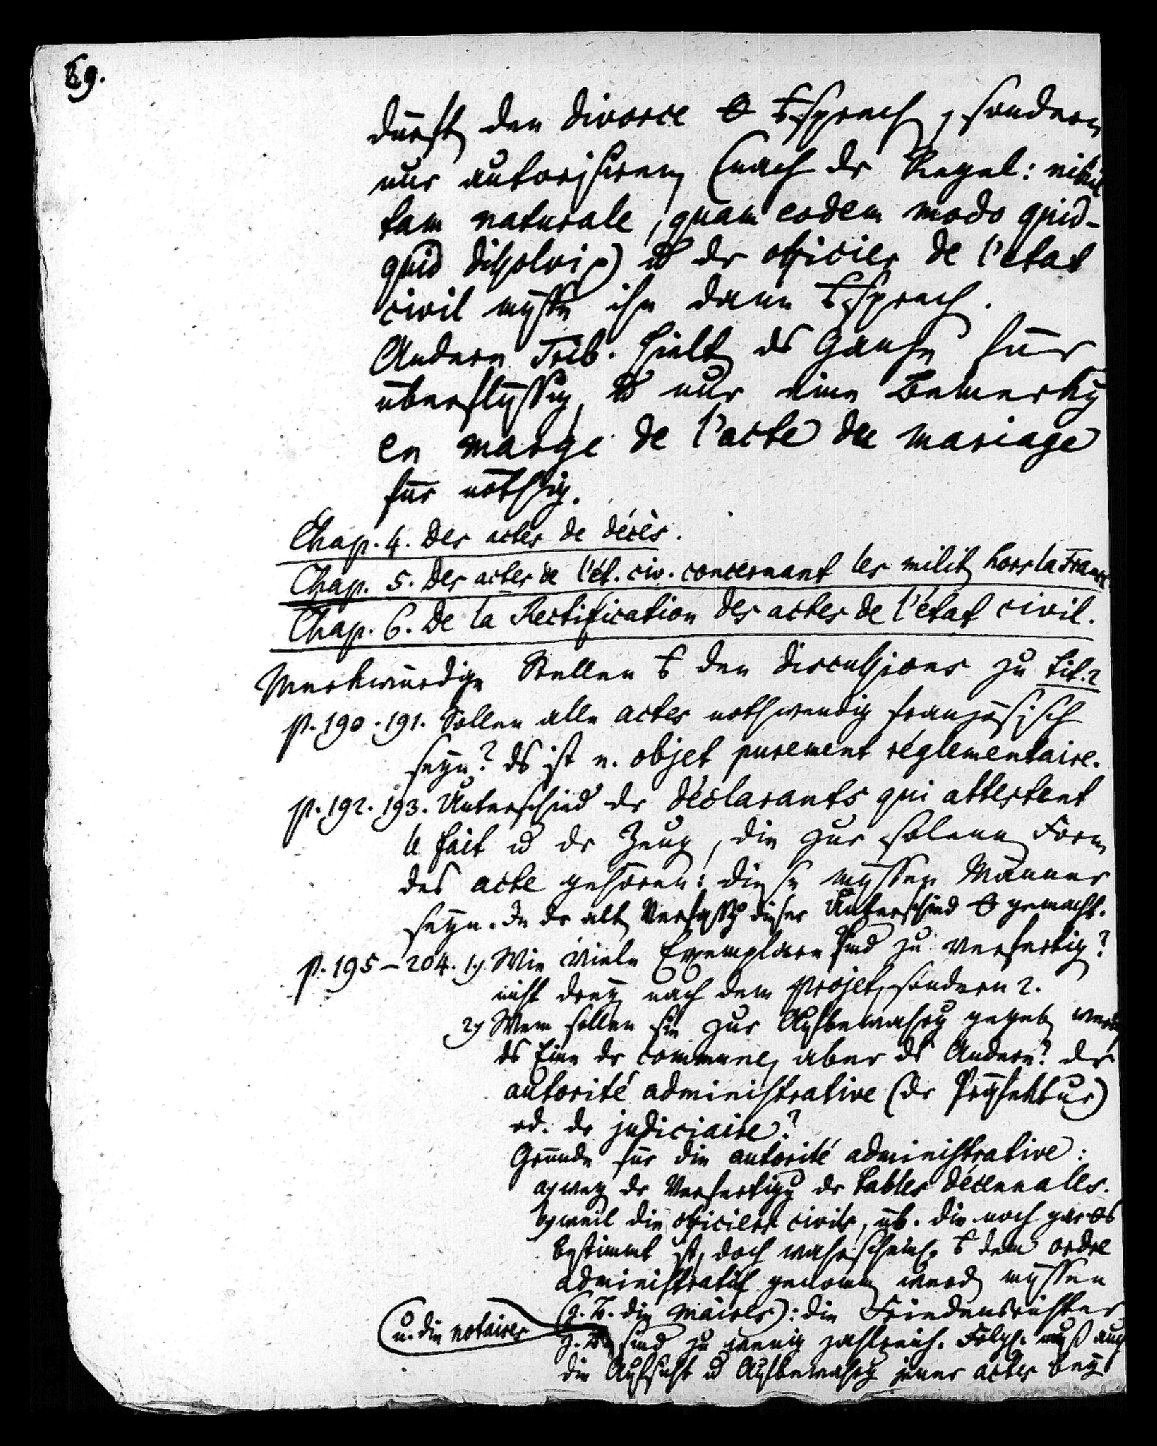 69.
dürft den divorce aussprech, sondern
nur autorisiren (nach dr Regel: nihil
tam naturale, quam eodem modo quid-
quid dissolvi) u dr officier de l'etat
civil müsse ihn dann aussprech.
Andere Trib. hielt ds Ganze für
überflüssig, u nur eine Bemerkg
en marge de l'acte du mariage
für nöthig.
Chap. 4. Des actes de décès.
Chap. 5. Des actes de l'ét. civ. concernant les milit hors la France
Chap. 6. De la Rectification des actes de l'état civil.
Merkwürdige Stellen den discussions zu tit. 2
p. 190. 191. Sollen alle actes nothwendig französisch
seyn? ds ist n. objet purement réglementaire.
p. 192. 193. Unterschied dr déclarants qui attestent
le fait u dr Zeug, die zur solenn Form
des acte gehören: diese müssen Männer
seyn. In dr alt Verfassg dieser Unterschied gemacht.
p. 195–204. 1) Wie viele Exemplare sind zu verfertig?
nicht drey nach dem Projet, sondern 2.
2) Wem sollen sie zur Aufbewahrg gegeb werd
ds Eine dr commune, aber ds Andere? der
autorité administrative (dr Präfektur)
od. dr judiciaire?
Gründe für die autorité administrative:
a) weg dr Verfertigg dr tables décennales.
b) weil die officiers civils, üb. die noch gar
bestimmt ist, doch wahrscheinl. dem ordre
administratif genomm werd müssen
(z. B. die maires): die Friedensrichter
u. die notaires
z. B. sind zu wenig zahlreich. Folgl. muß auch
die Aufsicht u Aufbewahrg jener actes bey